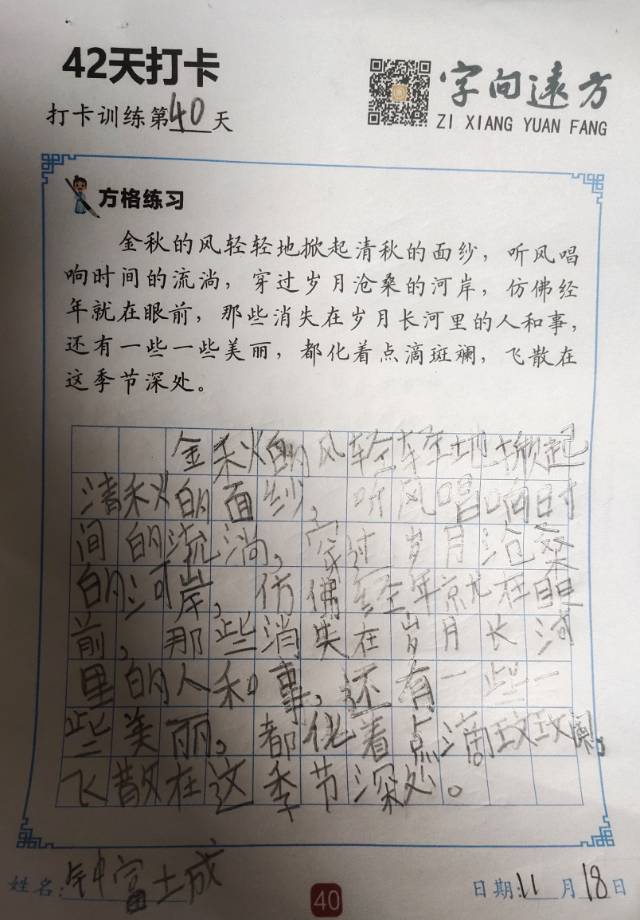 42天打卡
打卡训练第40天
字向远方
ZI XIANG YUAN FANG
方格练习
金秋的风轻轻地掀起清秋的面纱，听风唱
响时间的流淌，穿过岁月沧桑的河岸，仿佛经
年就在眼前，那些消失在岁月长河里的人和事，
还有一些一些美丽，都化着点滴斑斓，飞散在
这季节深处。
金秋的风轻轻地掀起
清秋的面纱，听风唱响时
间的流淌，穿过岁月沧桑
的河岸，仿佛经年就在眼
前，那些消失在岁月长河
里的人和事，还有一些一
些美丽，都化着点滴斓，
飞散在这季节深处。
姓名：钟富士成
40
日期：11月18日